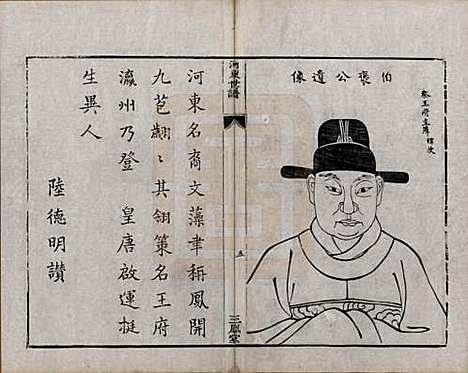 伯褒公遺像
秦王府主簿
河東世譜
五
三鳳堂
河東名裔文藻聿稱鳳開
九苞翽〻其翎策名王府
瀛州乃登　皇唐啟運挺
生異人
陸德明讚